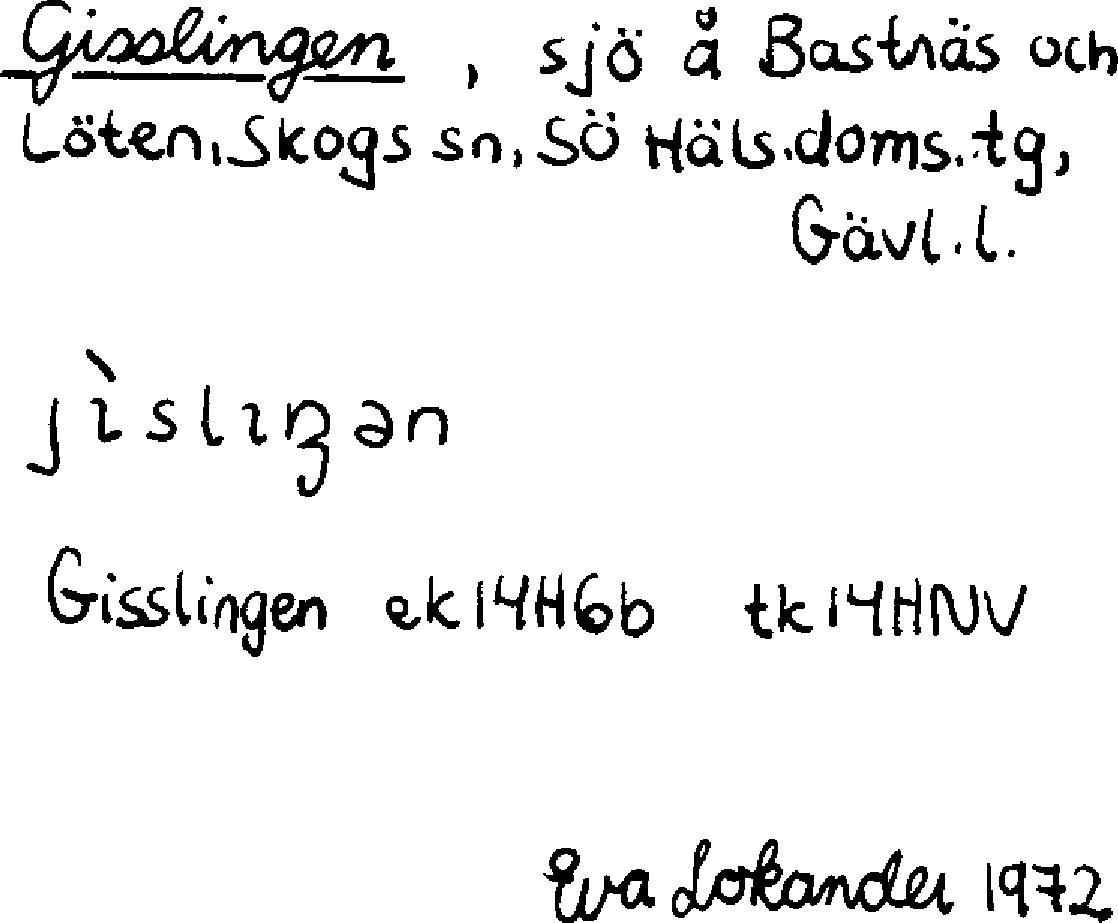 Gisslingen, sjö å Bastnäs och
Löten, Skogs sn, SÖ Häls.doms.tg,
Gävl.l.
jìslıŋən
Gisslingen ek 14H6b tk 14HNV
Eva Lokander 1972